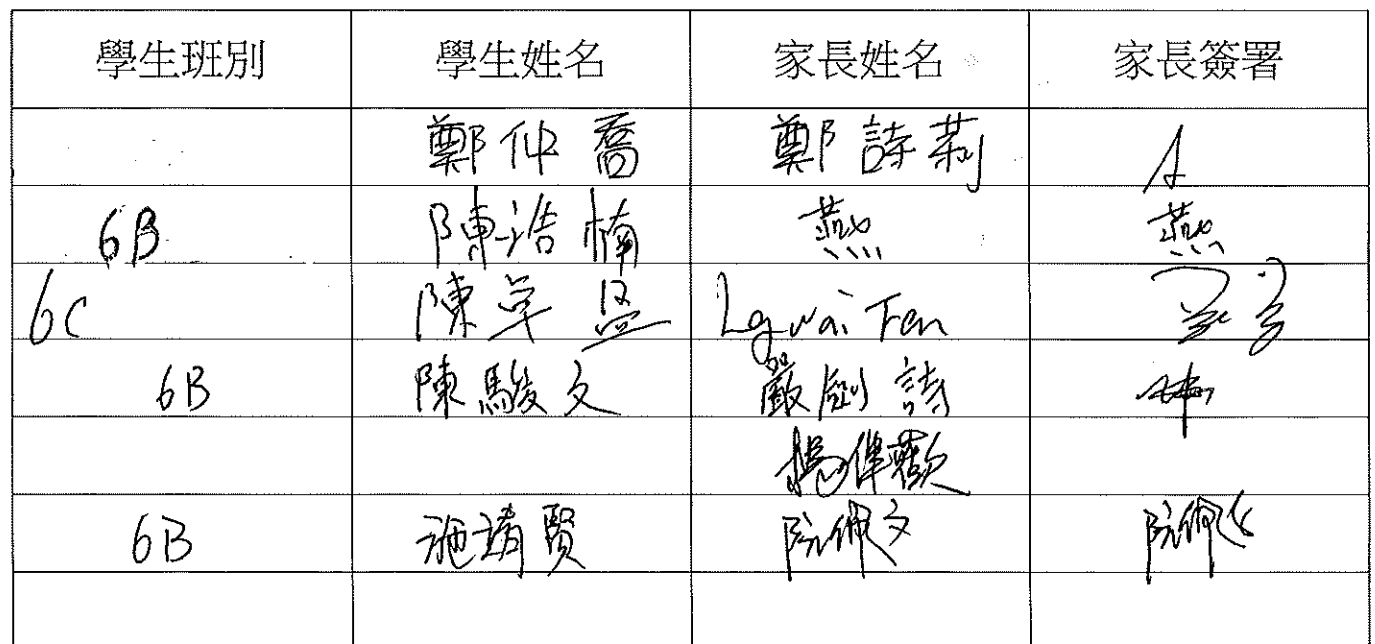 學生班別 學生姓名 家長姓名 家長簽署
鄭仲喬 鄭詩莉
6B 陳浩楠 燕 燕
6C 陳卓盈 Wai Fan
6B 陳駿文 嚴劍詩
楊偉歡
6B 施靖賢 阮佩文 阮佩文